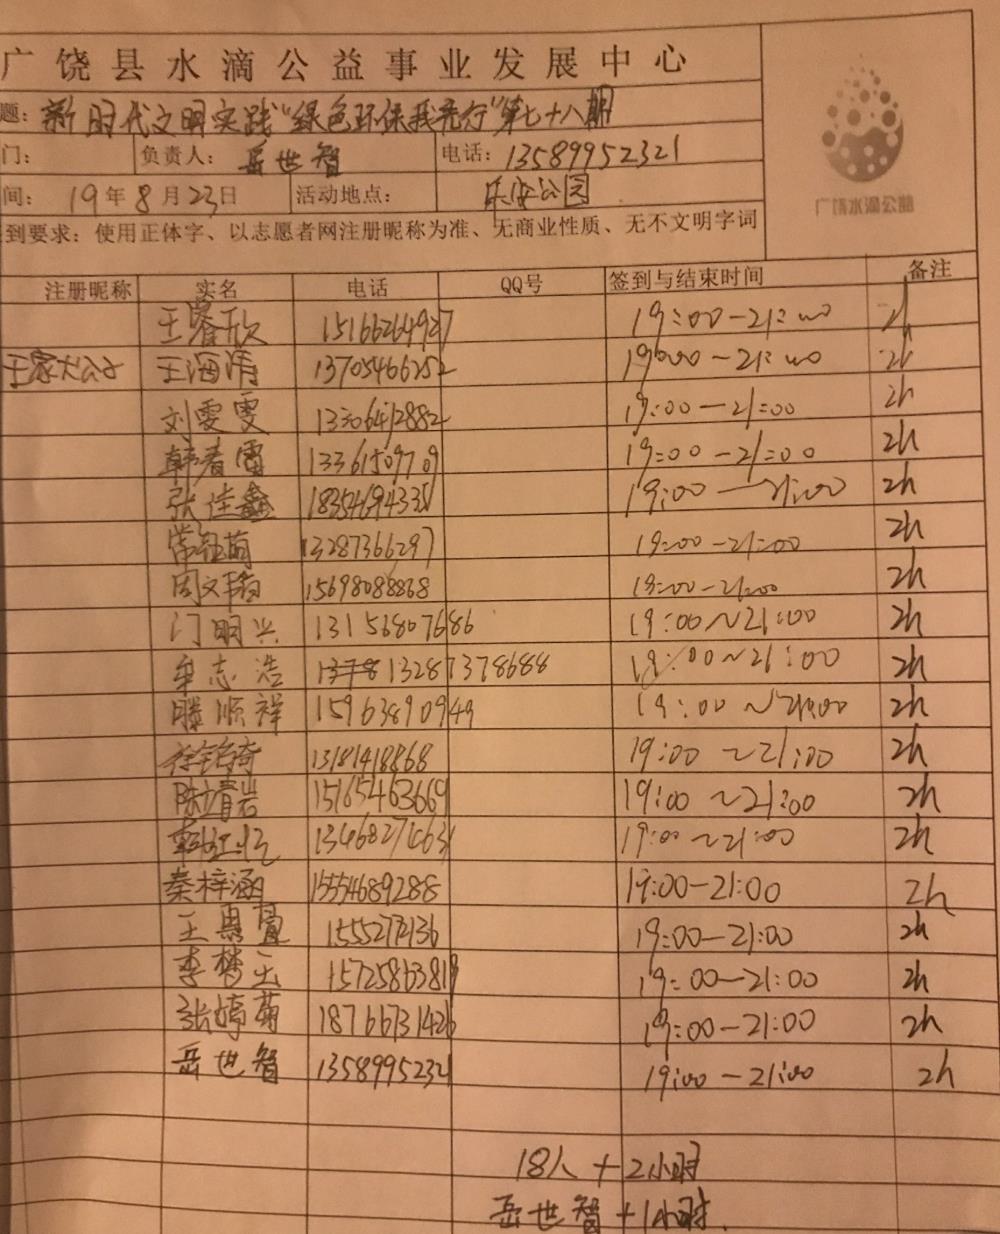 广饶县水滴公益事业发展中心
题: 新时代文明实践"绿色环保我先行"第七十八期
门: 负责人: 岳世智 电话: 13589952321
间: 19年8月23日 活动地点: 乐安公园
到要求: 使用正体字、以志愿者网注册昵称为准、无商业性质、无不文明字词
广饶水滴公益
注册昵称 实名 电话 QQ号 签到与结束时间 备注
王睿欣 15166264927 19:00-21:00 2h
王家大公子 王海清 13705466252 19:00-21:00 2h
刘雯雯 13306412882 19:00-21:00 2h
韩春雷 13361509709 19:00-21:00 2h
张佳鑫 18354694335 19:00-21:00 2h
常钰萌 13287366297 19:00-21:00 2h
周文韬 15698088868 19:00-21:00 2h
门明兴 13156807686 19:00~21:00 2h
牟志浩 13287378688 19:00~21:00 2h
滕顺祥 15963890949 19:00~21:00 2h
13181418868 19:00~21:00 2h
陈靖岩 15165463669 19:00~21:00 2h
13468274631 19:00~21:00 2h
秦梓涵 15554689288 19:00-21:00 2h
王 15552772136 19:00-21:00 2h
李梦玉 15725863819 19:00-21:00 2h
张婷菊 18766731426 19:00-21:00 2h
岳世智 13589952321 19:00-21:00 2h
18人+2小时
岳世智+1小时.